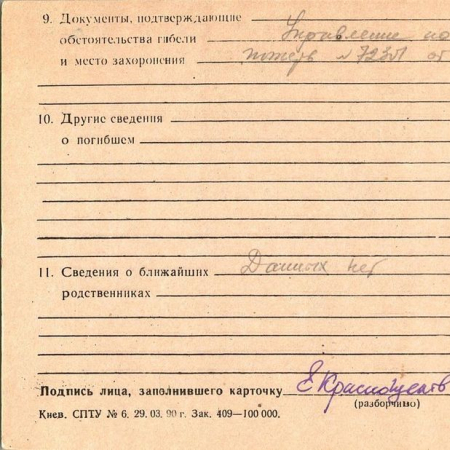 9. Документы, подтверждающие
обстоятельства гибели Управление по
и место захоронения потерь №
10. Другие сведения
о погибшем
11. Сведения о ближайших Данных нет
родственниках
Подпись лица, заполнившего карточку
(разборчиво)
Киев. СПТУ № 6. 29. 03. 90 г. Зак. 409—100 000.